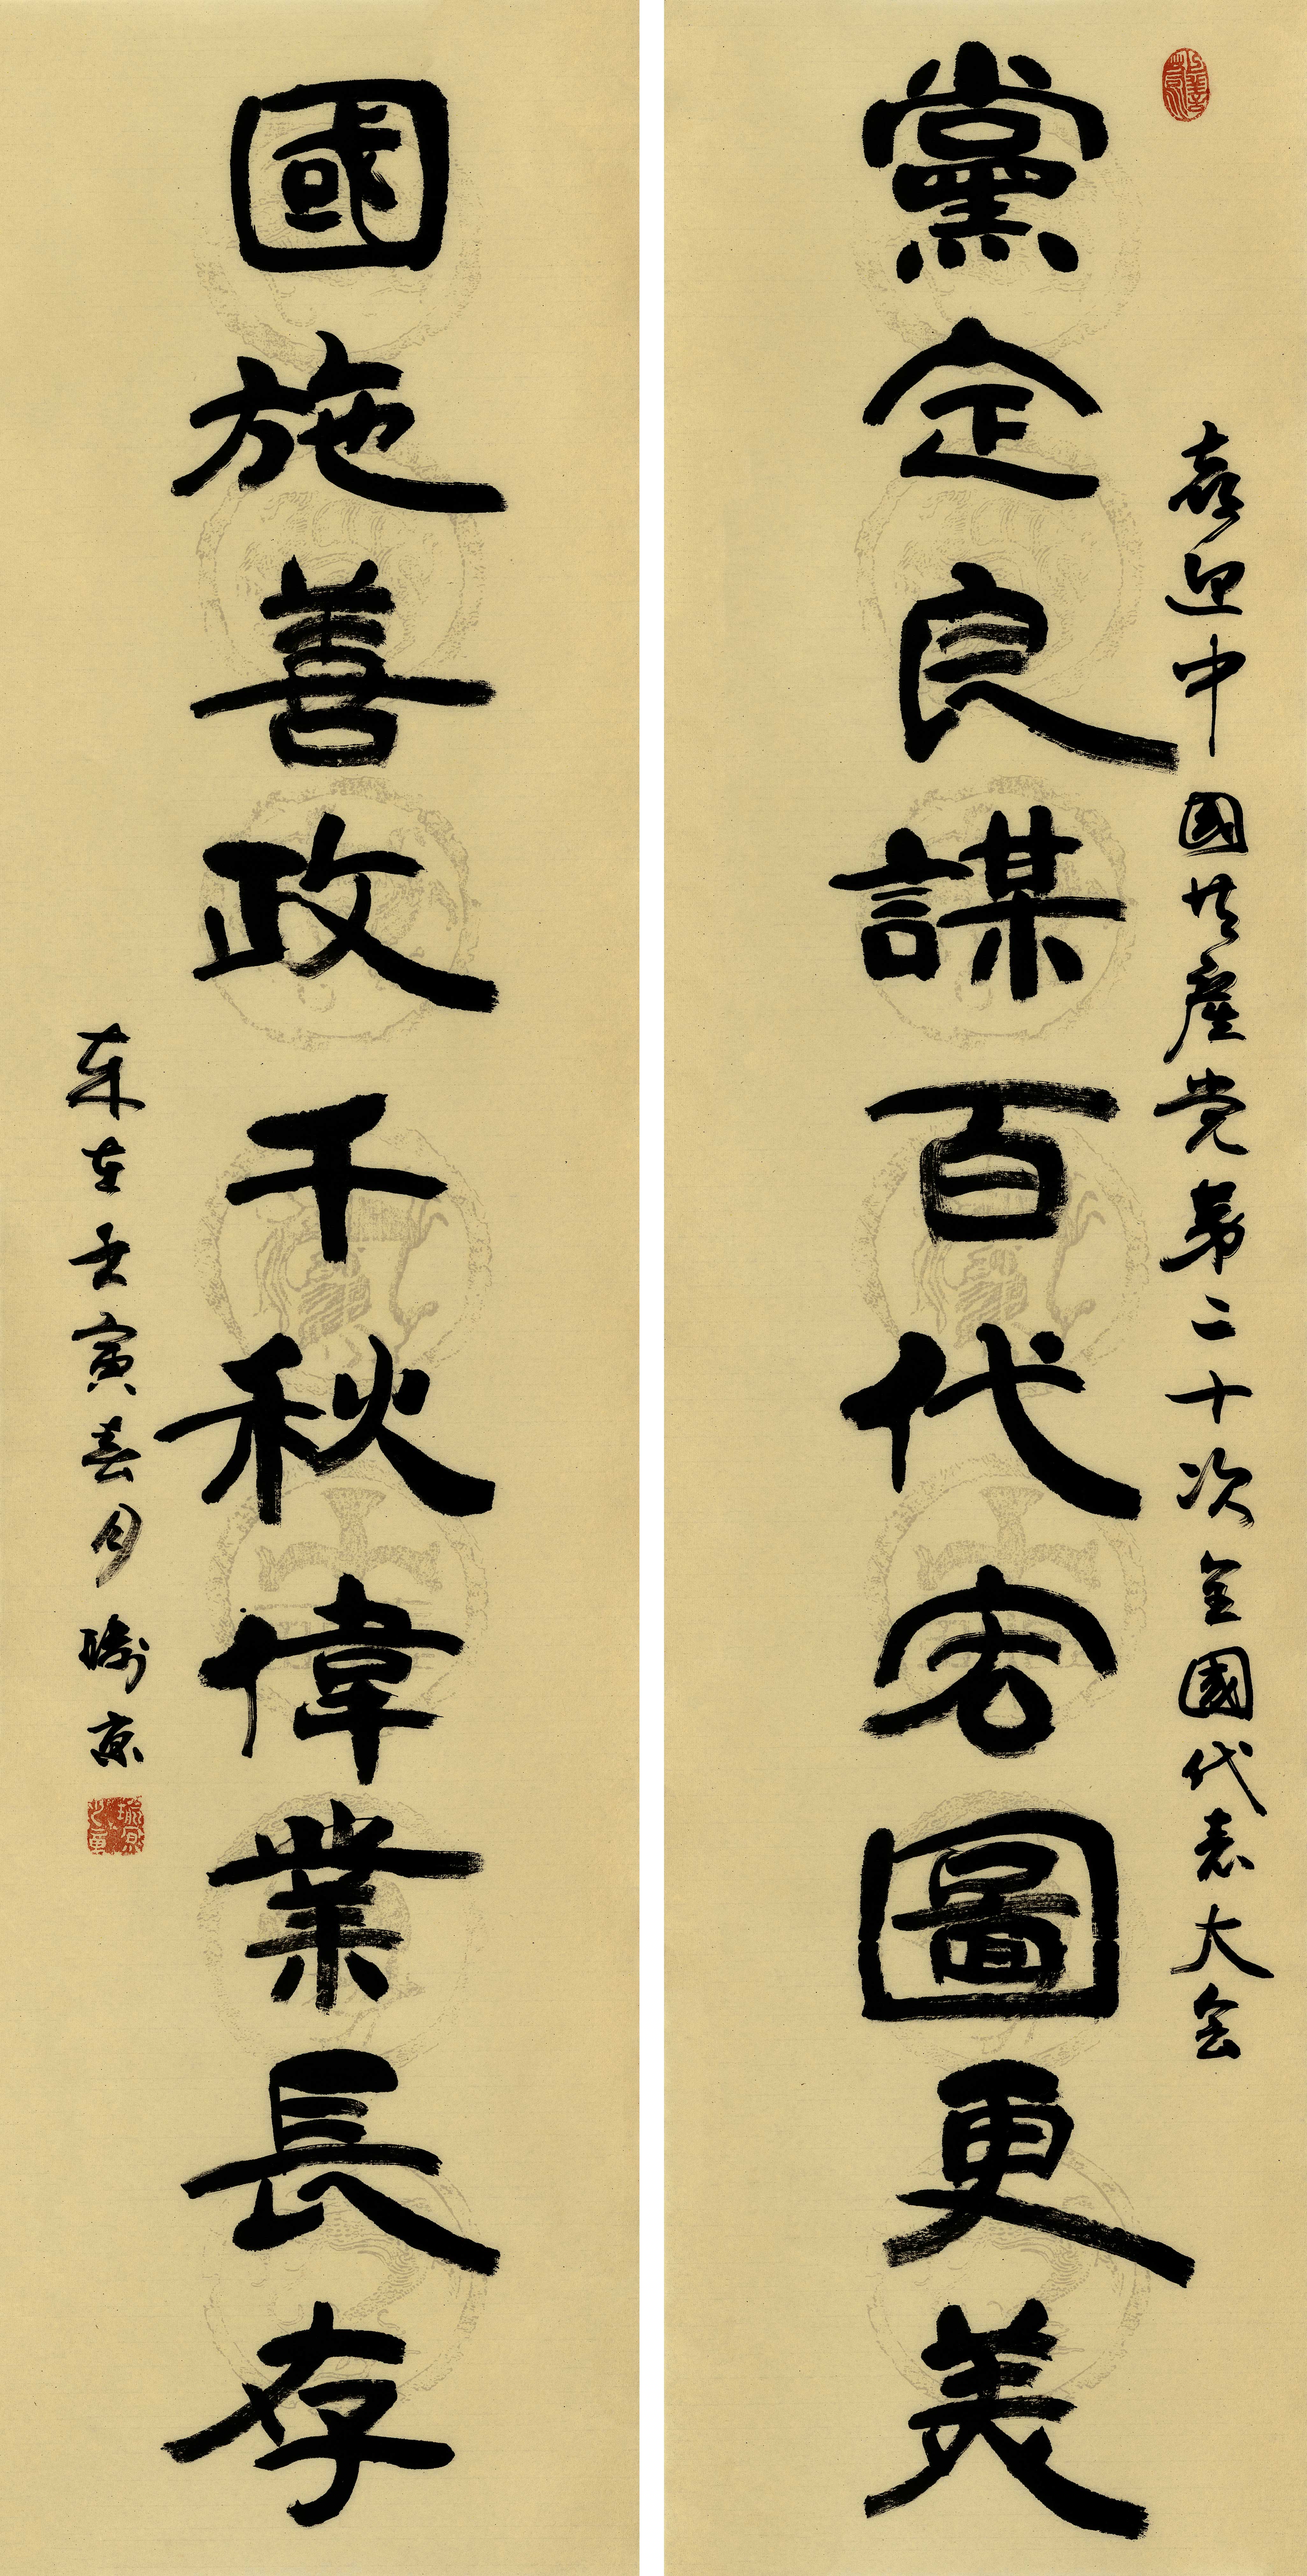 喜迎中國共產党第二十次全國代表大会
黨定良謀百代宏圖更美
國施善政千秋偉業長存
壬寅春月瑜原